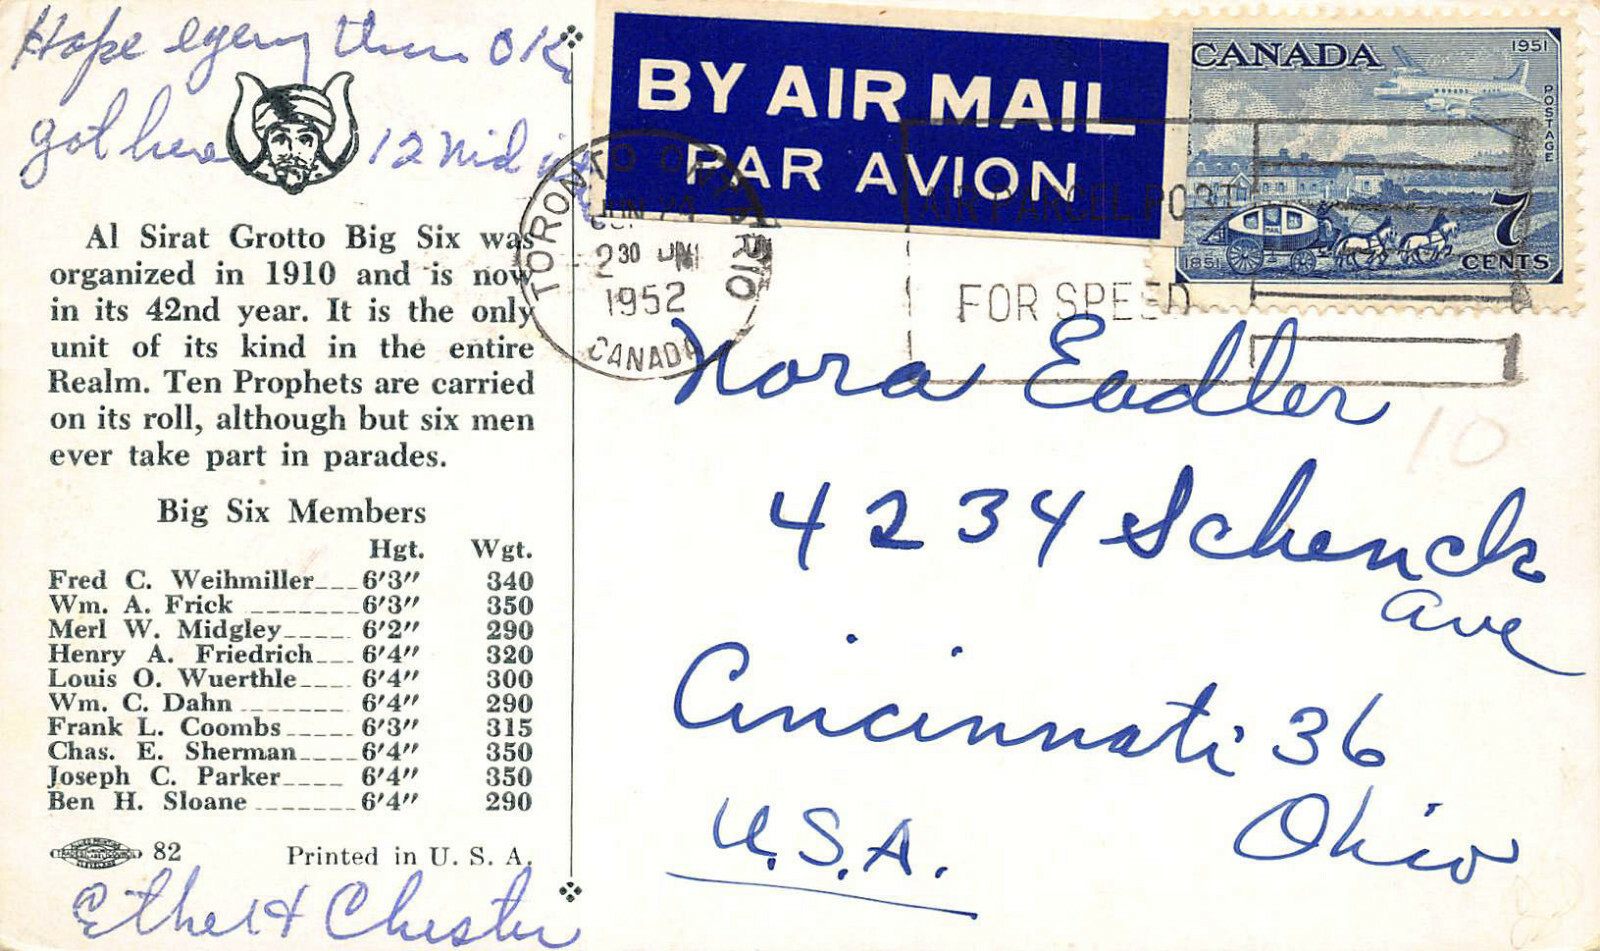 Hope everything OK.
got here 12 Mid
Al Sirat Grotto Big Six was
organized in 1910 and is now
in its 42nd year. It is the only
unit of its kind in the entire
Realm. Ten Prophets are carried
on its roll, although but six men
ever take part in parades.
Big Six Members
Hgt. Wgt.
Fred C. Weihmiller 6'3" 340
Wm. A. Frick 6'3" 350
Merl W. Midgley 6'2" 290
Henry A. Friedrich 6'4" 320
Louis O. Wuerthle 6'4" 300
Wm. C. Dahn 6'4" 290
Frank L. Coombs 6'3" 315
Chas. E. Sherman 6'4" 350
Joseph C. Parker 6'4" 350
Ben H. Sloane 6'4" 290
82 Printed in U. S. A.
Ethel & Chester
BY AIR MAIL
PAR AVION
CANADA 1951
POSTAGE
7
1851 CENTS
TORONTO ONTARIO
JUN 24
2 30 PM
1952
CANADA
AIR PARCEL POST
FOR SPEED
Nora Eadler
4234 Schenck
Ave
Cincinnati 36
Ohio
U.S.A.
10